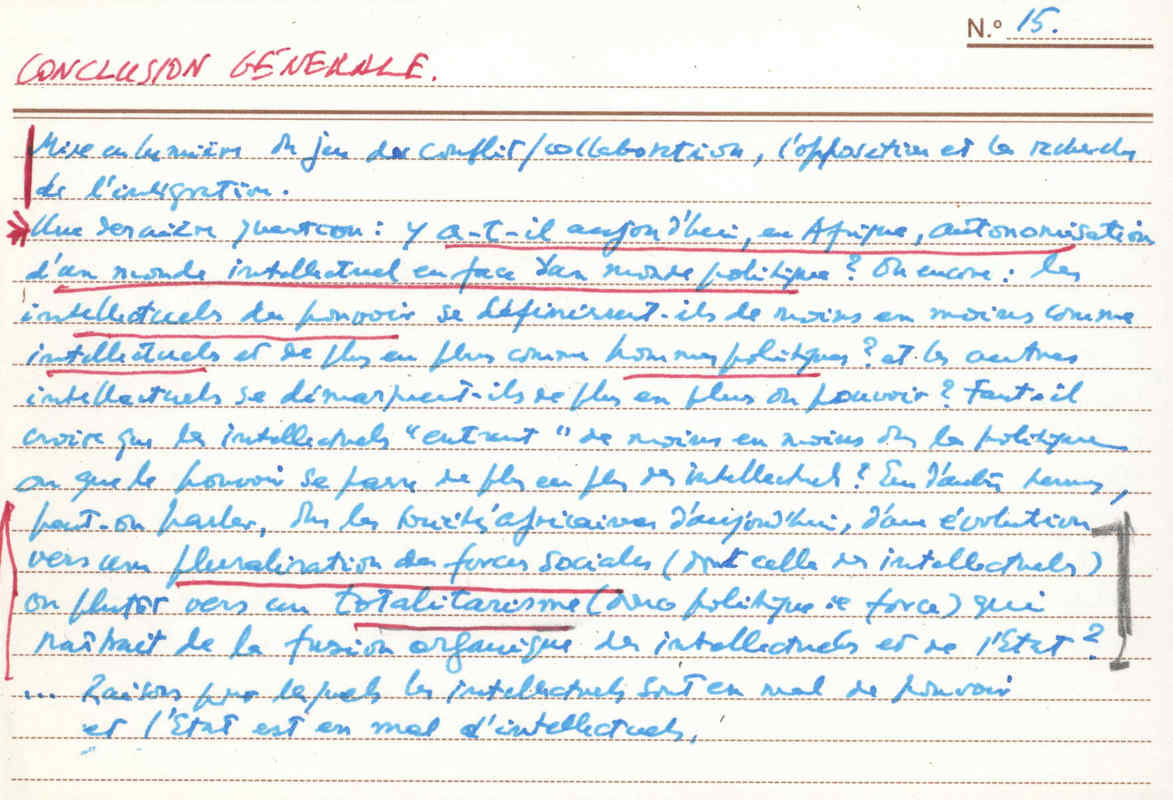 N.º 15.
CONCLUSION GÉNÉRALE.
Mise en lumière du jeu des conflit/collaboration, l'opposition et la recherche
de l'intégration.
Une dernière question : y a-t-il aujourd'hui, en Afrique, autonomisation
d'un monde intellectuel en face d'un monde politique ? Ou encore : les
intellectuels du pouvoir se définissent-ils de moins en moins comme
intellectuels et de plus en plus comme hommes politiques ? et les autres
intellectuels se démarquent-ils de plus en plus du pouvoir ? Faut-il
croire que les intellectuels "entrent" de moins en moins ds la politique
ou que le pouvoir se passe de plus en plus des intellectuels ? En d'autres termes,
peut-on parler, ds les sociétés africaines d'aujourd'hui, d'une évolution
vers une pluralisation des forces sociales (dont celle des intellectuels)
ou plutôt vers un totalitarisme (donc politique de force) qui
naîtrait de la fusion organique des intellectuels et de l'Etat ?
... Raisons pour lesquels les intellectuels sont en mal de pouvoir
et l'Etat est en mal d'intellectuels.